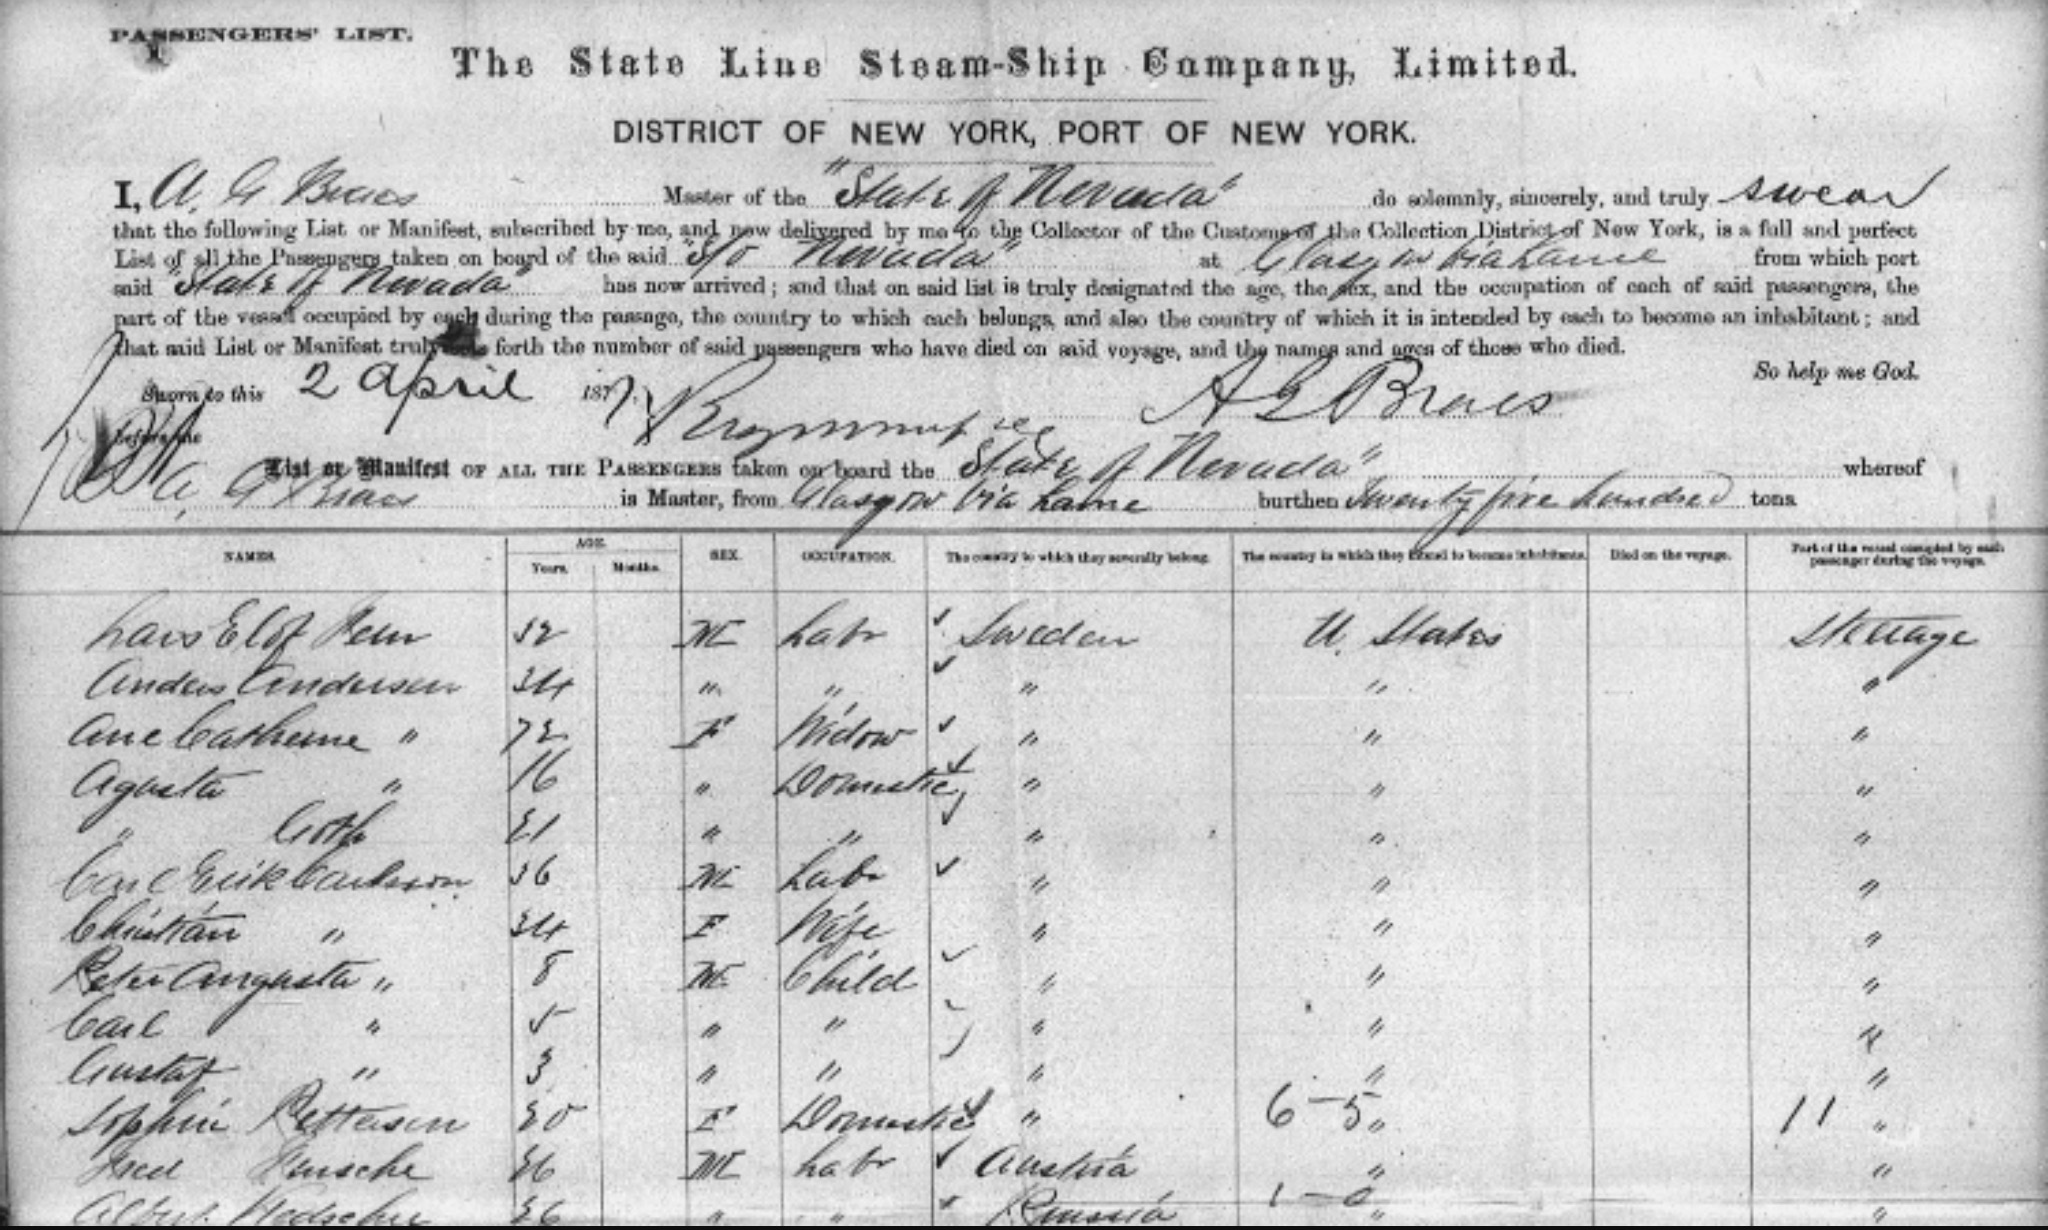 PASSENGERS' LIST.
The State Line Steam-Ship Company, Limited.
DISTRICT OF NEW YORK, PORT OF NEW YORK.
I, A. G Braes Master of the "State of Nevada" do solemnly, sincerely, and truly swear
that the following List or Manifest, subscribed by me, and now delivered by me to the Collector of the Customs of the Collection District of New York, is a full and perfect
List of all the Passengers taken on board of the said "S/o Nevada" at Glasgow via Larne from which port
said "State of Nevada" has now arrived; and that on said list is truly designated the age, the sex, and the occupation of each of said passengers, the
part of the vessel occupied by each during the passage, the country to which each belongs, and also the country of which it is intended by each to become an inhabitant; and
that said List or Manifest truly sets forth the number of said passengers who have died on said voyage, and the names and ages of those who died.
So help me God.
Sworn to this 2 April 1877. A G Braes
before me
List or Manifest OF ALL THE PASSENGERS taken on board the State of Nevada" whereof
A. G Braes is Master, from Glasgow via Larne burthen Twenty five hundred tons
NAMES. AGE. Years. Months. SEX. OCCUPATION. The country to which they severally belong. The country in which they intend to become inhabitants. Died on the voyage. Part of the vessel occupied by each passenger during the voyage.
Lars Elof M Labr Sweden U. States Steerage
Anders Andersen " " " " "
Ane Catherine " F Widow " " "
Agusta " 16 " Domestic " " "
" Goth " " " " "
Carl Erik Carlsson M Labr " " "
Christian " F Wife " " "
Peter Augusta " 8 M Child " " "
Carl " 5 " " " " "
Gustaf " 3 " " " " "
Sophie Pettersen 20 F Domestic " 6-5 " 11 "
Fred M Labr Austria " "
Albert " " Russia 1-0 " "